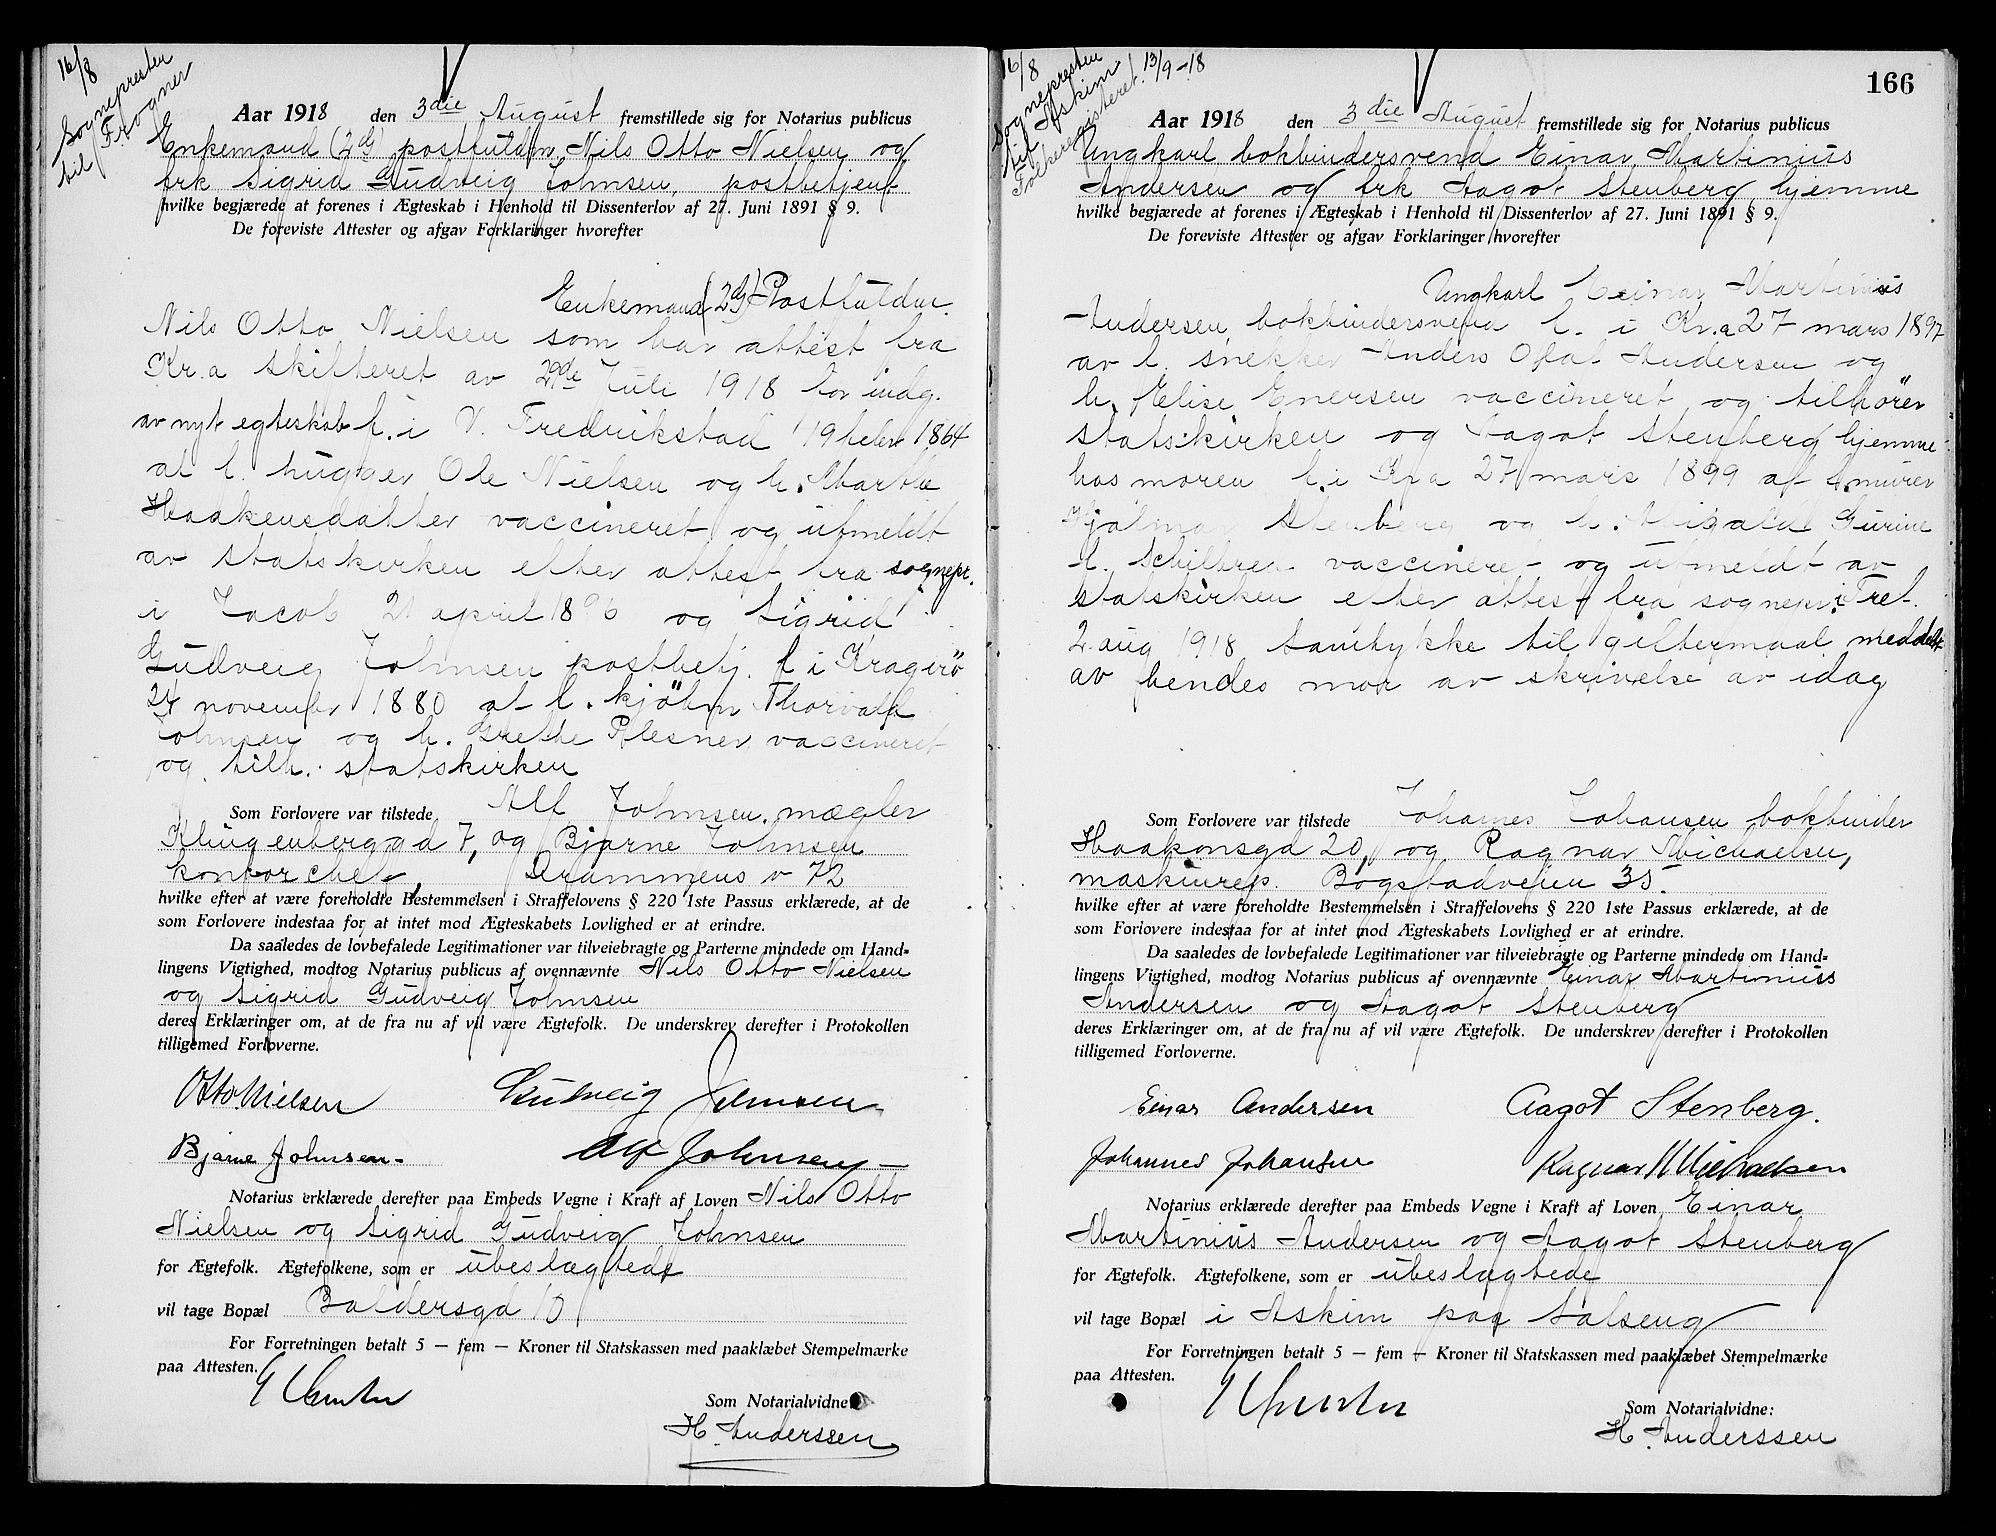 16/8
Sognepresten
til Frogner
Aar 1918 den 3die August fremstillede sig for Notarius publicus
Enkemand (2dg) postfuldm Nils Otto Nielsen og
frk Sigrid Gudveig Johnsen, postbetjent
hvilke begjærede at forenes i Ægteskab i Henhold til Dissenterlov af 27. Juni 1891 § 9.
De foreviste Attester og afgav Forklaringer hvorefter
Enkemand (2dg) Postfuldm.
Nils Otto Nielsen som har attest fra
Kr.a skifteret av 29de Juli 1918 for indg.
av nyt egteskab f. i V. Fredrikstad 19 febr 1864
af f. hugger Ole Nielsen og h. Marthe
Haakensdatter vaccineret og utmeldt
av statskirken efter attest fra sognepr.
i Jacob 21 april 1896 og Sigrid
Gudveig Johnsen postbetj. f i Kragerö
24 november 1880 af f. kjöbm Thorvald
Johnsen og h. Grethe Plesner vaccineret
og tilh. statskirken
Som Forlovere var tilstede Alf Johnsen, mægler
Klingenberggd 7, og Bjarne Johnsen
kontorchef, Drammens v 72
hvilke efter at være foreholdte Bestemmelsen i Straffelovens § 220 1ste Passus erklærede, at de
som Forlovere indestaa for at intet mod Ægteskabets Lovlighed er at erindre.
Da saaledes de lovbefalede Legitimationer var tilveiebragte og Parterne mindede om Hand-
lingens Vigtighed, modtog Notarius publicus af ovennævnte Nils Otto Nielsen
og Sigrid Gudveig Johnsen
deres Erklæringer om, at de fra nu af vil være Ægtefolk. De underskrev derefter i Protokollen
tilligemed Forloverne.
Otto Nielsen Gudveig Johnsen
Bjarne Johnsen- Alf Johnsen
Notarius erklærede derefter paa Embeds Vegne i Kraft af Loven Nils Otto
Nielsen og Sigrid Gudveig Johnsen
for Ægtefolk. Ægtefolkene, som er ubeslægtede
vil tage Bopæl Baldersgd 10
For Forretningen betalt 5 — fem — Kroner til Statskassen med paaklæbet Stempelmærke
paa Attesten.
Som Notarialvidne:
H. Anderssen
166
16/8
Sognepresten
til Askim
Folkeregisteret 13/9-18
Aar 1918 den 3die August fremstillede sig for Notarius publicus
Ungkarl bokbindersvend Einar Martinius
Andersen og frk Aagot Stenberg, hjemme
hvilke begjærede at forenes i Ægteskab i Henhold til Dissenterlov af 27. Juni 1891 § 9.
De foreviste Attester og afgav Forklaringer hvorefter
Ungkarl Einar Martinius
Andersen bokbindersvend f. i Kr.a 27 mars 1897
av f. snekker Anders Olaf Andersen og
h. Elise Enersen vaccineret og tilhörer
statskirken og Aagot Stenberg hjemme
hos moren f. i Kr.a 27 mars 1899 af f. murer
Hjalmar Stenberg og h. Gurine
f. Schiltren vaccineret og utmeldt av
statskirken efter attest fra sognepr. i Tref.
2. aug 1918. Samtykke til giftermaal meddelt
av hendes mor av skrivelse av idag
Som Forlovere var tilstede Johannes Johansen bokbinder
Haakonsgd 20, og Ragnar Michaelsen,
maskinrep. Bogstadveien 35.
hvilke efter at være foreholdte Bestemmelsen i Straffelovens § 220 1ste Passus erklærede, at de
som Forlovere indestaa for at intet mod Ægteskabets Lovlighed er at erindre.
Da saaledes de lovbefalede Legitimationer var tilveiebragte og Parterne mindede om Hand-
lingens Vigtighed, modtog Notarius publicus af ovennævnte Einar Martinius
Andersen og Aagot Stenberg
deres Erklæringer om, at de fra nu af vil være Ægtefolk. De underskrev derefter i Protokollen
tilligemed Forloverne.
Einar Andersen Aagot Stenberg.
Johannes Johansen Ragnar Michaelsen
Notarius erklærede derefter paa Embeds Vegne i Kraft af Loven Einar
Martinius Andersen og Aagot Stenberg
for Ægtefolk. Ægtefolkene, som er ubeslægtede
vil tage Bopæl i Askim paa Solseng
For Forretningen betalt 5 — fem — Kroner til Statskassen med paaklæbet Stempelmærke
paa Attesten.
Som Notarialvidne:
H. Anderssen